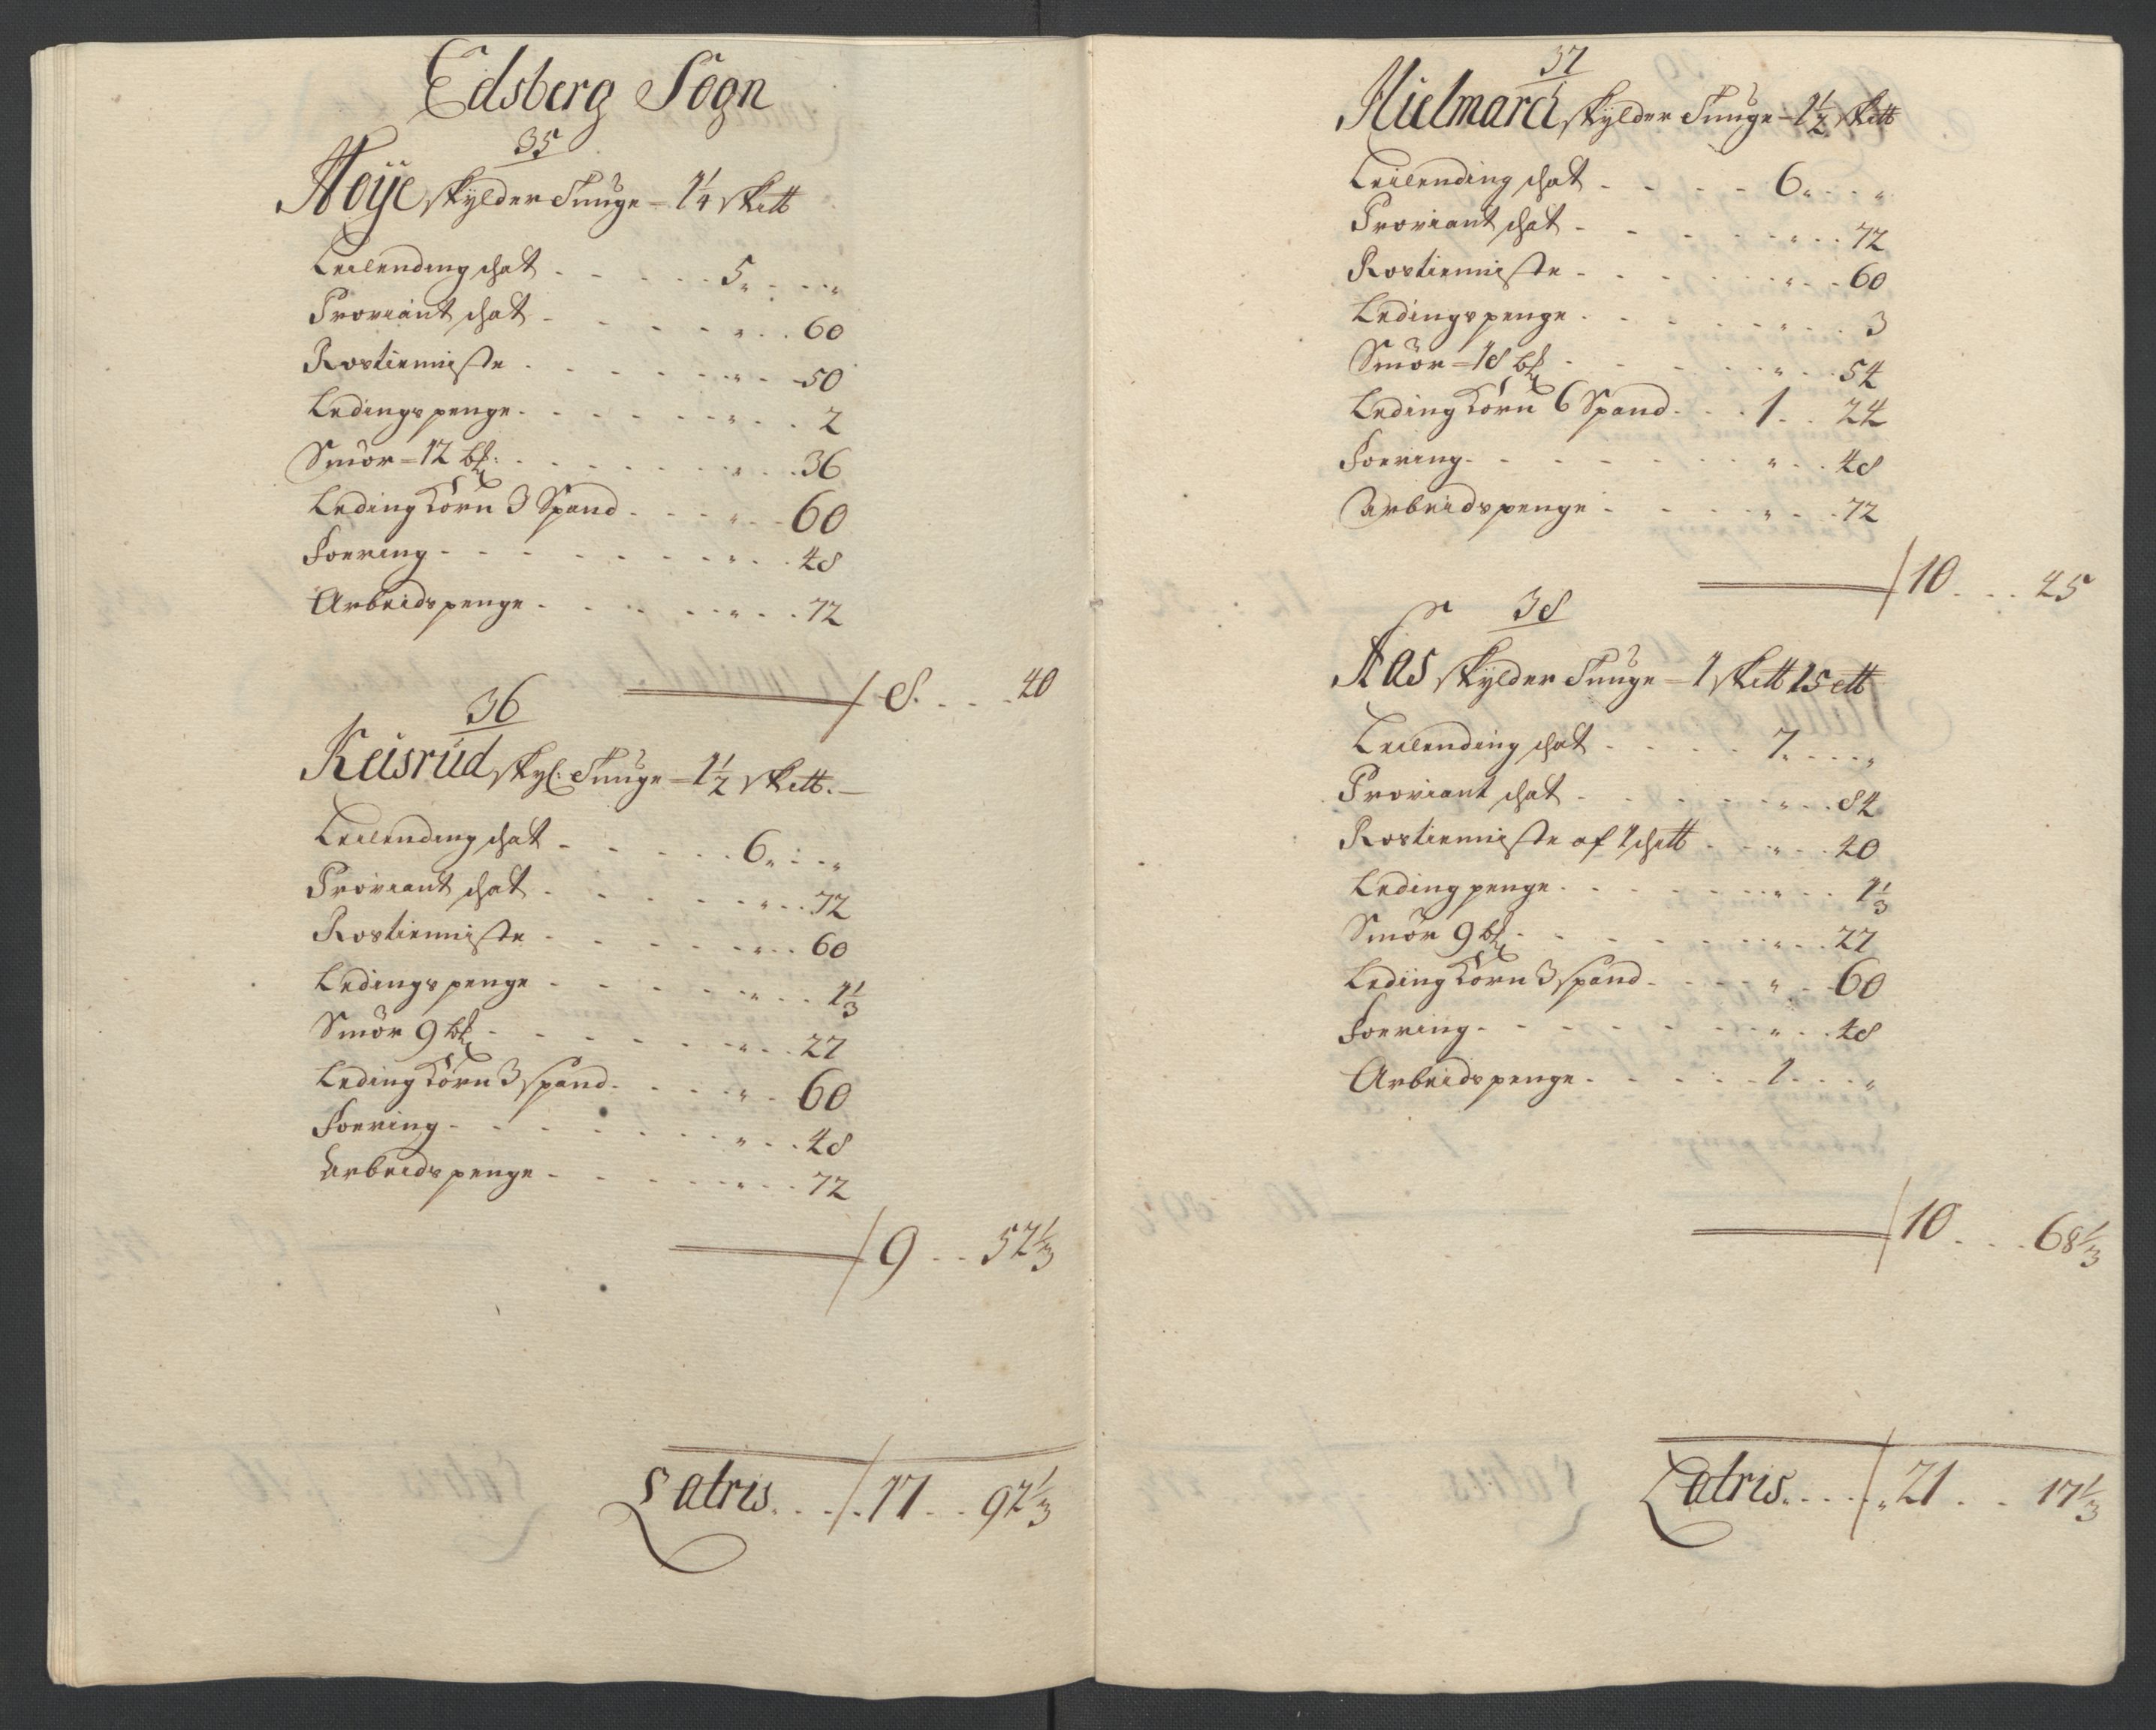 Edsberg Sogn
35
Høÿe skylder Tunge = 1 1/4 skett
Leilending schat - - - - - 5 „ - - „
Proviant schat - - - - - „ - - 60
Rostienniste - - - - - „ - - 50
Ledings penge - - - - - „ - - 2
Smör = 12 bḿ: - - - - - „ - - 36
Leding Korn 3 Spand - - - „ - - 60
Foering - - - - - „ - - 48
Arbeids penge - - - - - „ - - 72
8 - - - 40
36
Keisrud skyl: Tunge = 1 1/2 skett. -
Leilending schat - - - - - 6 „ - - „
Proviant schat - - - - - „ - - 72
Rostienniste - - - - - „ - - 60
Ledings penge - - - - - „ - - 1 1/3
Smör 9 bḿ - - - - - „ - - 27
Leding Korn 3 spand - - - „ - - 60
Foering - - - - - „ - - 48
Arbeids penge - - - - - „ - - 72
9 - - 52 1/3
Latris - - - 17 - - 92 1/3
37
Hielmarch skylder Tunge = 1 1/2 skett
Leilending schat - - - - - 6 „ - - „
Proviant schat - - - - - „ - - 72
Rostienniste - - - - - „ - - 60
Ledings penge - - - - - „ - - 3
Smör = 18 bḿ - - - - - „ - - 54
Leding Korn 6 Spand - - - 1 - - 24
Foering - - - - - „ - - 48
Arbeids penge - - - - - „ - - 72
10 - - - 45
38
Aas skylder Tunge = 1 skett 15 ett
Leilending schat - - - - - 7 „ - - „
Proviant schat - - - - - „ - - 84
Rostienniste af 1 schett - - - „ - - 40
Leding penge - - - - - „ - - 1 1/3
Smör 9 bḿ - - - - - „ - - 27
Leding Korn 3 spand - - - „ - - 60
Foering - - - - - „ - - 48
Arbeids penge - - - - - 1 - - „
10 - - - 68 1/3
Latris - - - - „ 21 - - 17 1/3